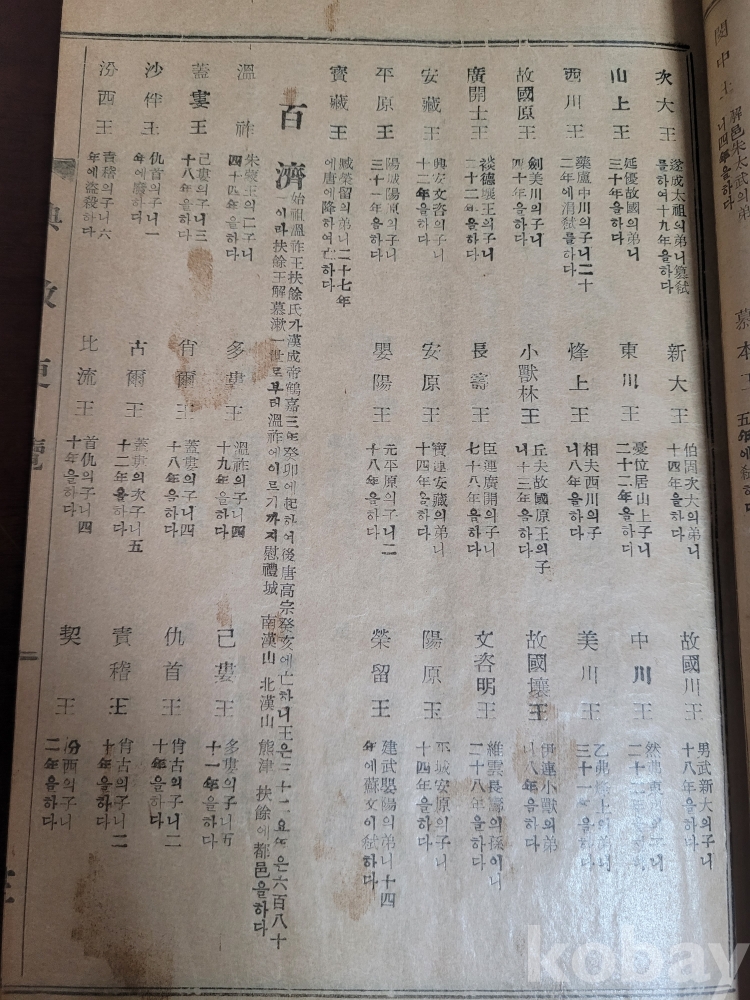 次大王
遂成太祖의弟니簒弑
를하여十九年을하다
新大王
伯固次大의弟니
十四年을하다
故國川王
男武新大의子니
十八年을하다
山上王
延優故國의弟니
三十年을하다
東川王
憂位居山上子니
二十二年을하디
中川王
然弗 의子니
二十二
西川王
藥盧中川의子니二十
二年에消弑를하다
烽上王
相夫西川의子
니八年을하다
美川王
乙弗 上의弟니
三十一年을하다
故國原王
釗美川의子니
四十年을하다
小獸林王
丘夫故國原王의子
니十三年을하다
故國壤王
伊連小獸의弟
니八年을하다
廣開士王
談德壤王의子니
二十二年을하다
長壽王
臣連廣開의子니
七十八年을하다
文咨明王
維雲長壽의孫이니
二十八年을하다
安藏王
興安文咨의子니
十二年을하다
安原王
寶迎安藏의弟니
十四年을하다
陽原王
平城安原의子니
十四年을하다
平原王
陽城陽原의子니
三十一年을하다
嬰陽王
元平原의子니二
十八年을하다
榮留王
建武嬰陽의弟니十四
年에蘇文이弑하다
寶藏王
臧榮留의弟니二十七年
에唐에降하여亡하다
百濟
始祖溫祚王扶餘氏가漢成帝鶴嘉三年癸卯에起하여後唐高宗癸亥에亡하니王은三十一요年은六百八十
一이라扶餘王解慕漱一世로부터溫祚에이르기까지慰禮城 南漢山 北漢山 熊津 扶餘에都邑을하다
溫祚
朱蒙王의二子니
四十四年을하다
多婁王
溫祚의子니四
十九年을하다
己婁王
多婁의子니五
十一年을하다
蓋婁王
己婁의子니三
十八年을하다
肖爾王
蓋婁의子니四
十八年을하다
仇首王
肖古의子니二
十年을하다
沙伴王
仇首의子니一
年에廢하다
古爾王
蓋婁의次子니五
十二年을하다
責稽王
肖古의子니二
十年을하다
汾西王
責稽의子니六
年에盜殺하다
比流王
首仇의子니四
十年을하다
契王
汾西의子니
二年을하다
kobay